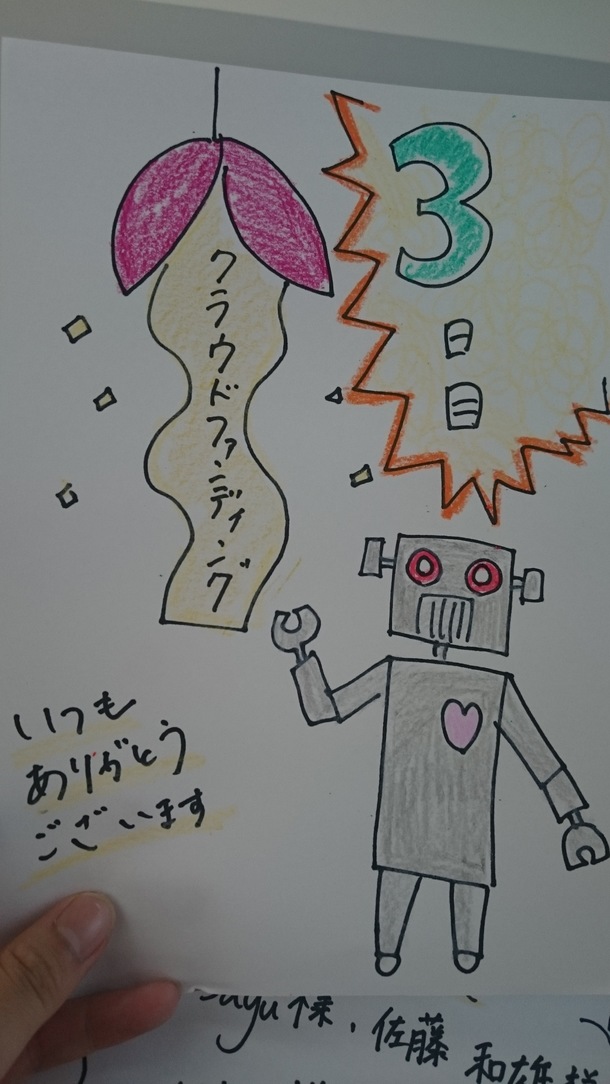 クラウドファンディング
3
日
目
いつも
ありがとう
ございます
ayu様、佐藤
和雄様